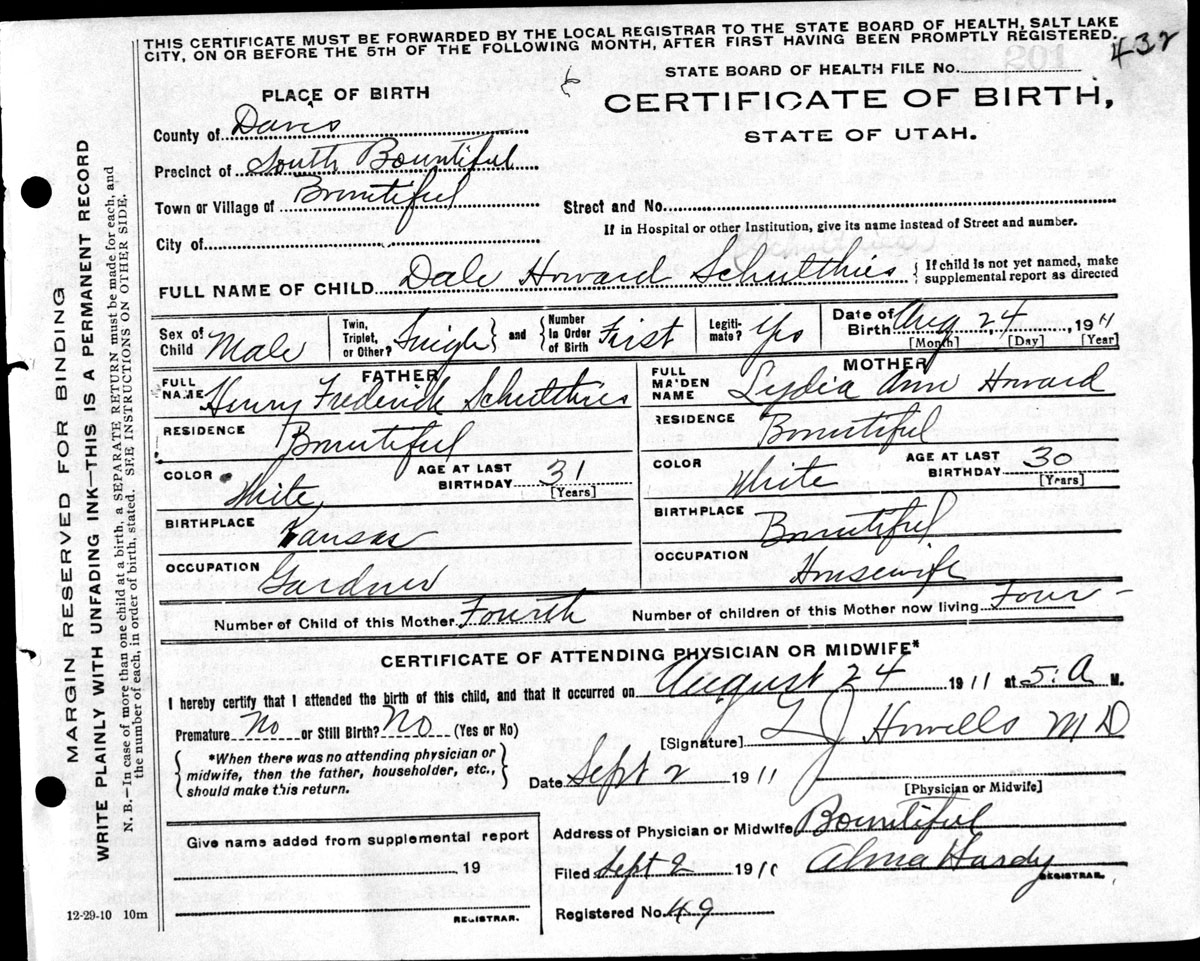 THIS CERTIFICATE MUST BE FORWARDED BY THE LOCAL REGISTRAR TO THE STATE BOARD OF HEALTH, SALT LAKE
CITY, ON OR BEFORE THE 5TH OF THE FOLLOWING MONTH, AFTER FIRST HAVING BEEN PROMPTLY REGISTERED.
432
STATE BOARD OF HEALTH FILE No.
PLACE OF BIRTH
CERTIFICATE OF BIRTH,
STATE OF UTAH.
County of Davis
Precinct of South Bountiful
Town or Village of Bountiful
Street and No.
If in Hospital or other Institution, give its name instead of Street and number.
City of
FULL NAME OF CHILD Dale Howard Schulthies { If child is not yet named, make
supplemental report as directed
Sex of Child Male
Twin, Triplet, or Other? Single } and { Number In Order of Birth First
Legiti-mate? Yes
Date of Birth Aug 24 1911
[Month] [Day] [Year]
FATHER
FULL NAME Henry Frederick Schulthies
RESIDENCE Bountiful
COLOR White
AGE AT LAST BIRTHDAY 31 [Years]
BIRTHPLACE Kansas
OCCUPATION Gardner
MOTHER
FULL MAIDEN NAME Lydia Ann Howard
RESIDENCE Bountiful
COLOR White
AGE AT LAST BIRTHDAY 30 [Years]
BIRTHPLACE Bountiful
OCCUPATION Housewife
Number of Child of this Mother Fourth Number of children of this Mother now living Four
CERTIFICATE OF ATTENDING PHYSICIAN OR MIDWIFE*
I hereby certify that I attended the birth of this child, and that it occurred on August 24 1911 at 5:A M.
Premature No or Still Birth? No (Yes or No)
[Signature] L J Howells M D
*When there was no attending physician or
midwife, then the father, householder, etc.,
should make this return.
Date Sept 2 1911
[Physician or Midwife]
Give name added from supplemental report
19
REGISTRAR.
Address of Physician or Midwife Bountiful
Filed Sept 2 1911 Alma Hardy
REGISTRAR.
Registered No. 49
12-29-10 10m
MARGIN RESERVED FOR BINDING
WRITE PLAINLY WITH UNFADING INK—THIS IS A PERMANENT RECORD
N. B.—In case of more than one child at a birth, a SEPARATE RETURN must be made for each, and
the number of each, in order of birth, stated. SEE INSTRUCTIONS ON OTHER SIDE.